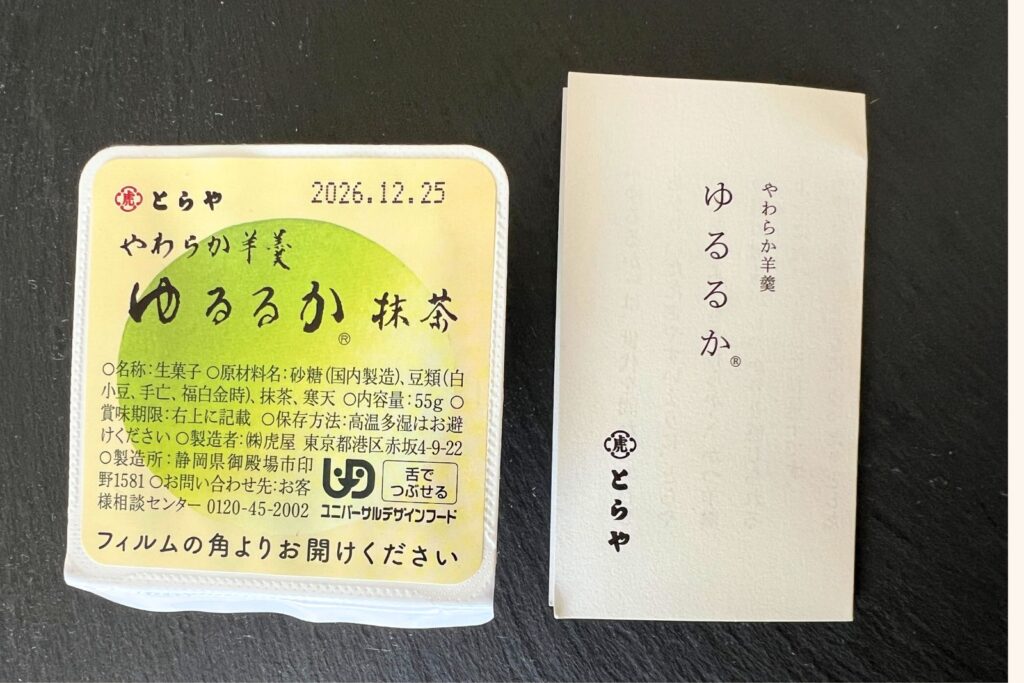 虎 とらや
2026.12.25
やわらか羊羹
ゆるるか® 抹茶
○名称:生菓子 ○原材料名:砂糖(国内製造)、豆類(白
小豆、手亡、福白金時)、抹茶、寒天 ○内容量:55g ○
賞味期限:右上に記載 ○保存方法:高温多湿はお避
けください ○製造者:㈱虎屋 東京都港区赤坂4-9-22
○製造所:静岡県御殿場市印
野1581 ○お問い合わせ先:お客
様相談センター 0120-45-2002
舌で
つぶせる
ユニバーサルデザインフード
フィルムの角よりお開けください
やわらか羊羹
ゆるるか®
虎 とらや